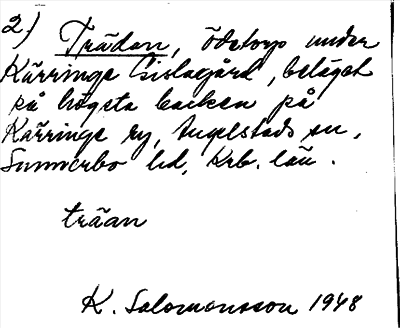 2) Trädan, ödetorp under
Kärringe Gislagård, beläget
på högsta backen på
Kärringe by, Angelstads sn,
Sunnerbo hd, Krb. län.
träan
K. Salomonsson 1948